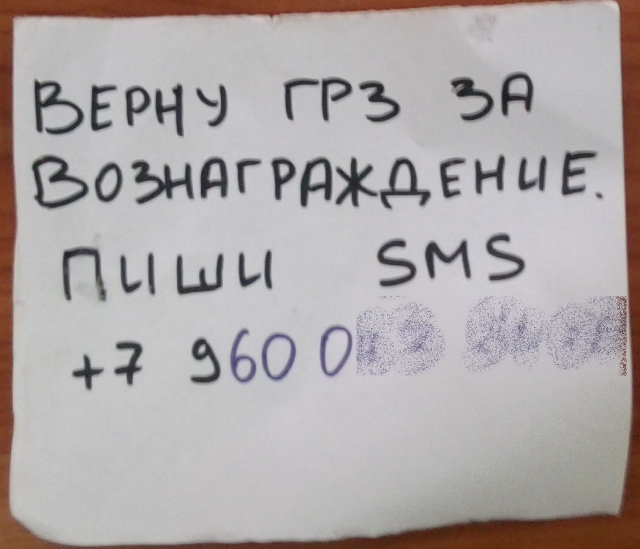 ВЕРНУ ГРЗ ЗА
ВОЗНАГРАЖДЕНИЕ.
ПИШИ SMS
+7 960 0